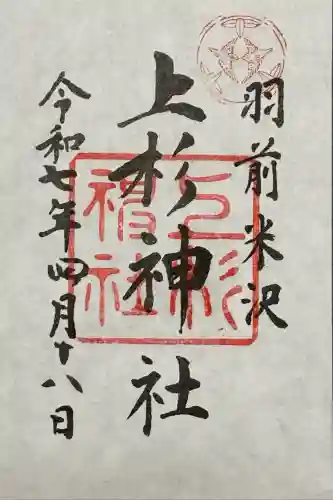 羽前米沢
上杉神社
上杉
神社
令和七年四月十八日